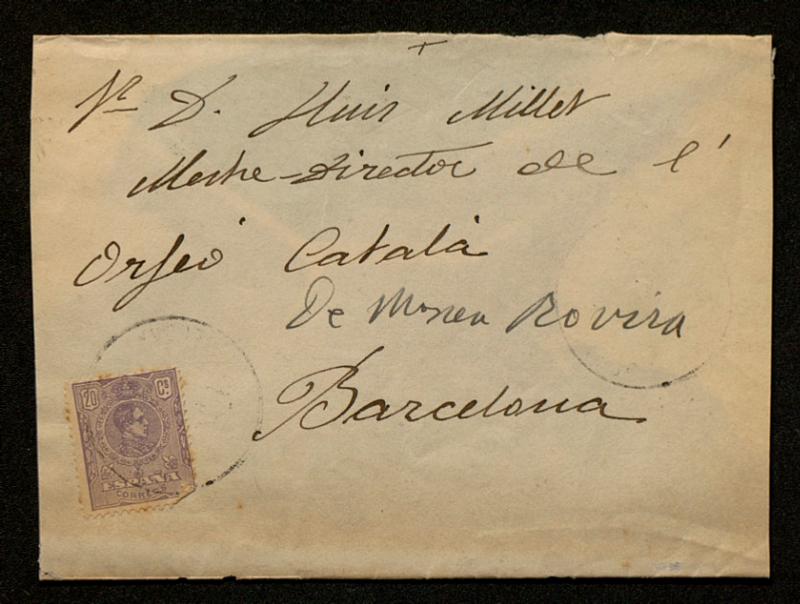 Sr. D. Lluis Millet
Mestre-Director de l'
Orfeó Català
De Mossen Rovira
Barcelona
20 Cs
ESPAÑA
CORREOS